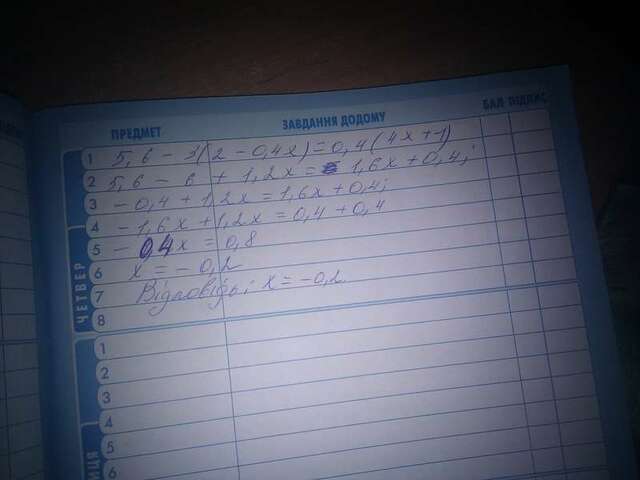 ПРЕДМЕТ ЗАВДАННЯ ДОДОМУ БАЛ ПІДПИС
1 5,6 - 3(2 - 0,4x) = 0,4(4x+1)
2 5,6 - 6 + 1,2x = 1,6x + 0,4;
3 - 0,4 + 1,2x = 1,6x + 0,4;
4 - 1,6x + 1,2x = 0,4 + 0,4
5 - 0,4x = 0,8
6 x = - 0,2
7 Відповідь: x = - 0,2
8
ЧЕТВЕР
1
2
3
4
5
6